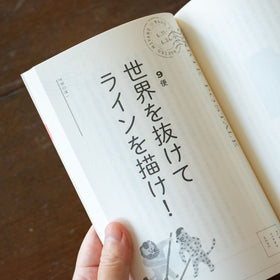 9便
世界を抜けて
ラインを描け!